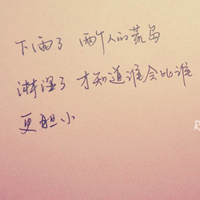 下雨了 两个人的荒岛
淋湿了 才知道谁会比谁
更胆小
R